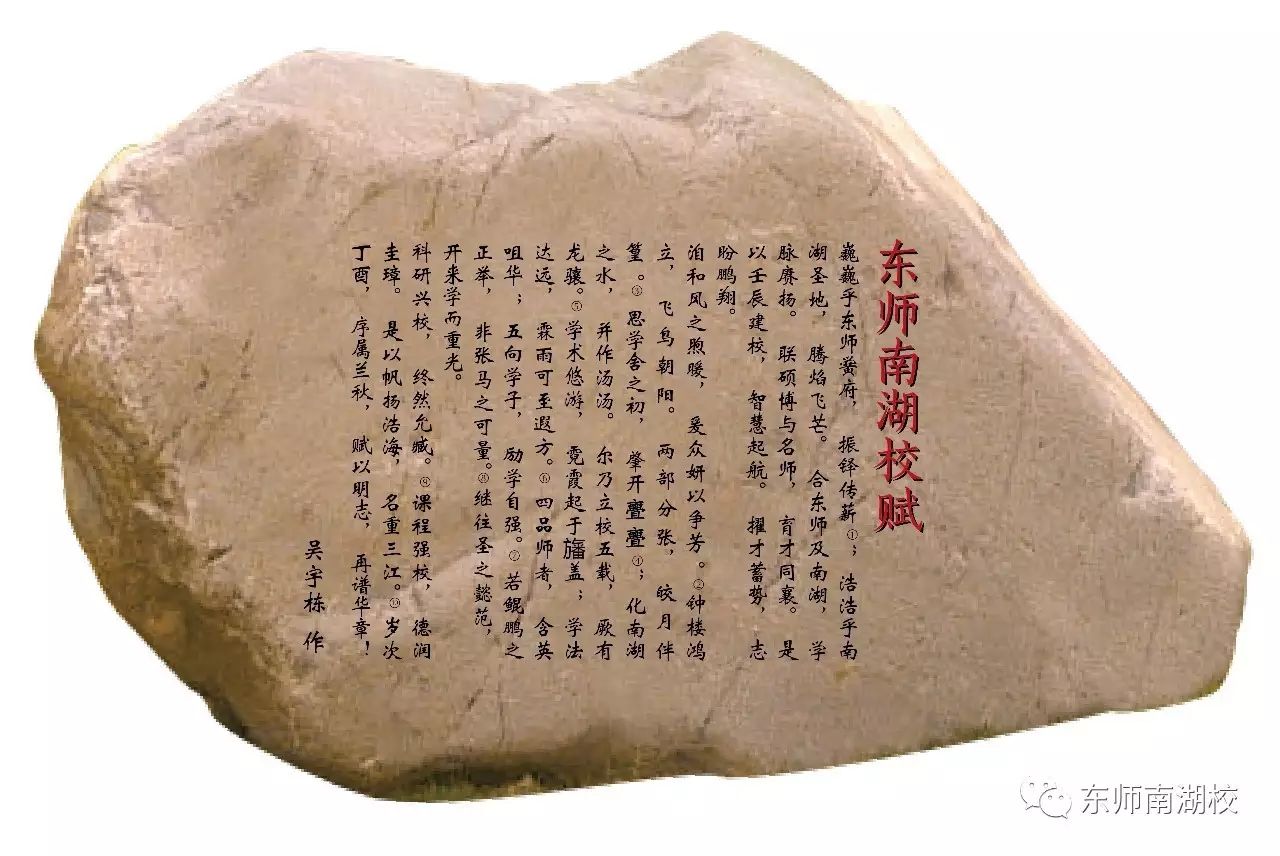 东师南湖校赋
巍巍乎东师黉府，振铎传薪①；浩浩乎南
湖圣地，腾焰飞芒。合东师及南湖，学
脉赓扬。联硕博与名师，育才同襄。是
以壬辰建校，智慧起航。擢才蓄势，志
盼鹏翔。
洎和风之煦暖，爰众妍以争芳。②钟楼鸿
立，飞鸟朝阳。两部分张，皎月伴
篁。③思学舍之初，肇开亹亹④；化南湖
之水，并作汤汤。尔乃立校五载，厥有
龙骧。⑤学术悠游，霓霞起于旛盖；学法
达远，霖雨可至遐方。⑥四品师者，含英
咀华；五向学子，励学自强。⑦若鲲鹏之
正举，非张马之可量。⑧继往圣之懿范，
开来学而重光。
科研兴校，终然允臧。⑨课程强校，德润
圭璋。是以帆扬浩海，名重三江。⑩岁次
丁酉，序属兰秋，赋以明志，再谱华章！
吴宇栋 作
东师南湖校